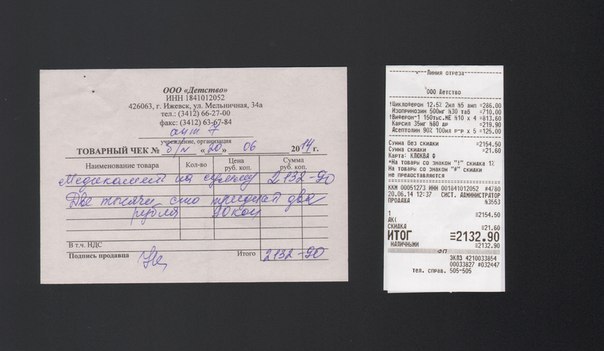 ООО «Детство»
ИНН 1841012052
426063, г. Ижевск, ул. Мельничная, 34а
тел.: (3412) 66-27-00
факс: (3412) 63-67-84
апт 7
учреждение, организация
ТОВАРНЫЙ ЧЕК № б/н «20» 06 2014г.
Наименование товара Кол-во Цена руб. коп. Сумма руб. коп.
Медикамент на сумму 2132-90
Две тысячи сто тридцать два
рубля 90 коп
В т.ч. НДС
Подпись продавца Итого 2132-90
Линия отреза
ООО Детство
!Циклоферон 12.5% 2мл №5 амп =286.00
Изопринозин 500мг №30 таб =710.00
!Виферон-1 150тыс.МЕ №10 x 4 =813.60
Карсил 35мг №80 др =219.90
Асептолин 90% 100мл р-р x 5 =125.00
Сумма без скидки =2154.50
Сумма скидки =21.60
Карта: КЛЮКВА
*На товары со знаком "!" скидка 1%
*На товары со знаком "#" скидка
не предоставляется
ККМ 00051273 ИНН 001841012052 #4780
20.06.14 12:37 СИСТ. АДМИНИСТРАТОР
ПРОДАЖА №3553
1 =2154.50
СКИДКА =21.60
ИТОГ =2132.90
НАЛИЧНЫМИ =2132.90
ФП
ЭКЛЗ 4210033854
00033827 #032447
тел. справ. 505-505